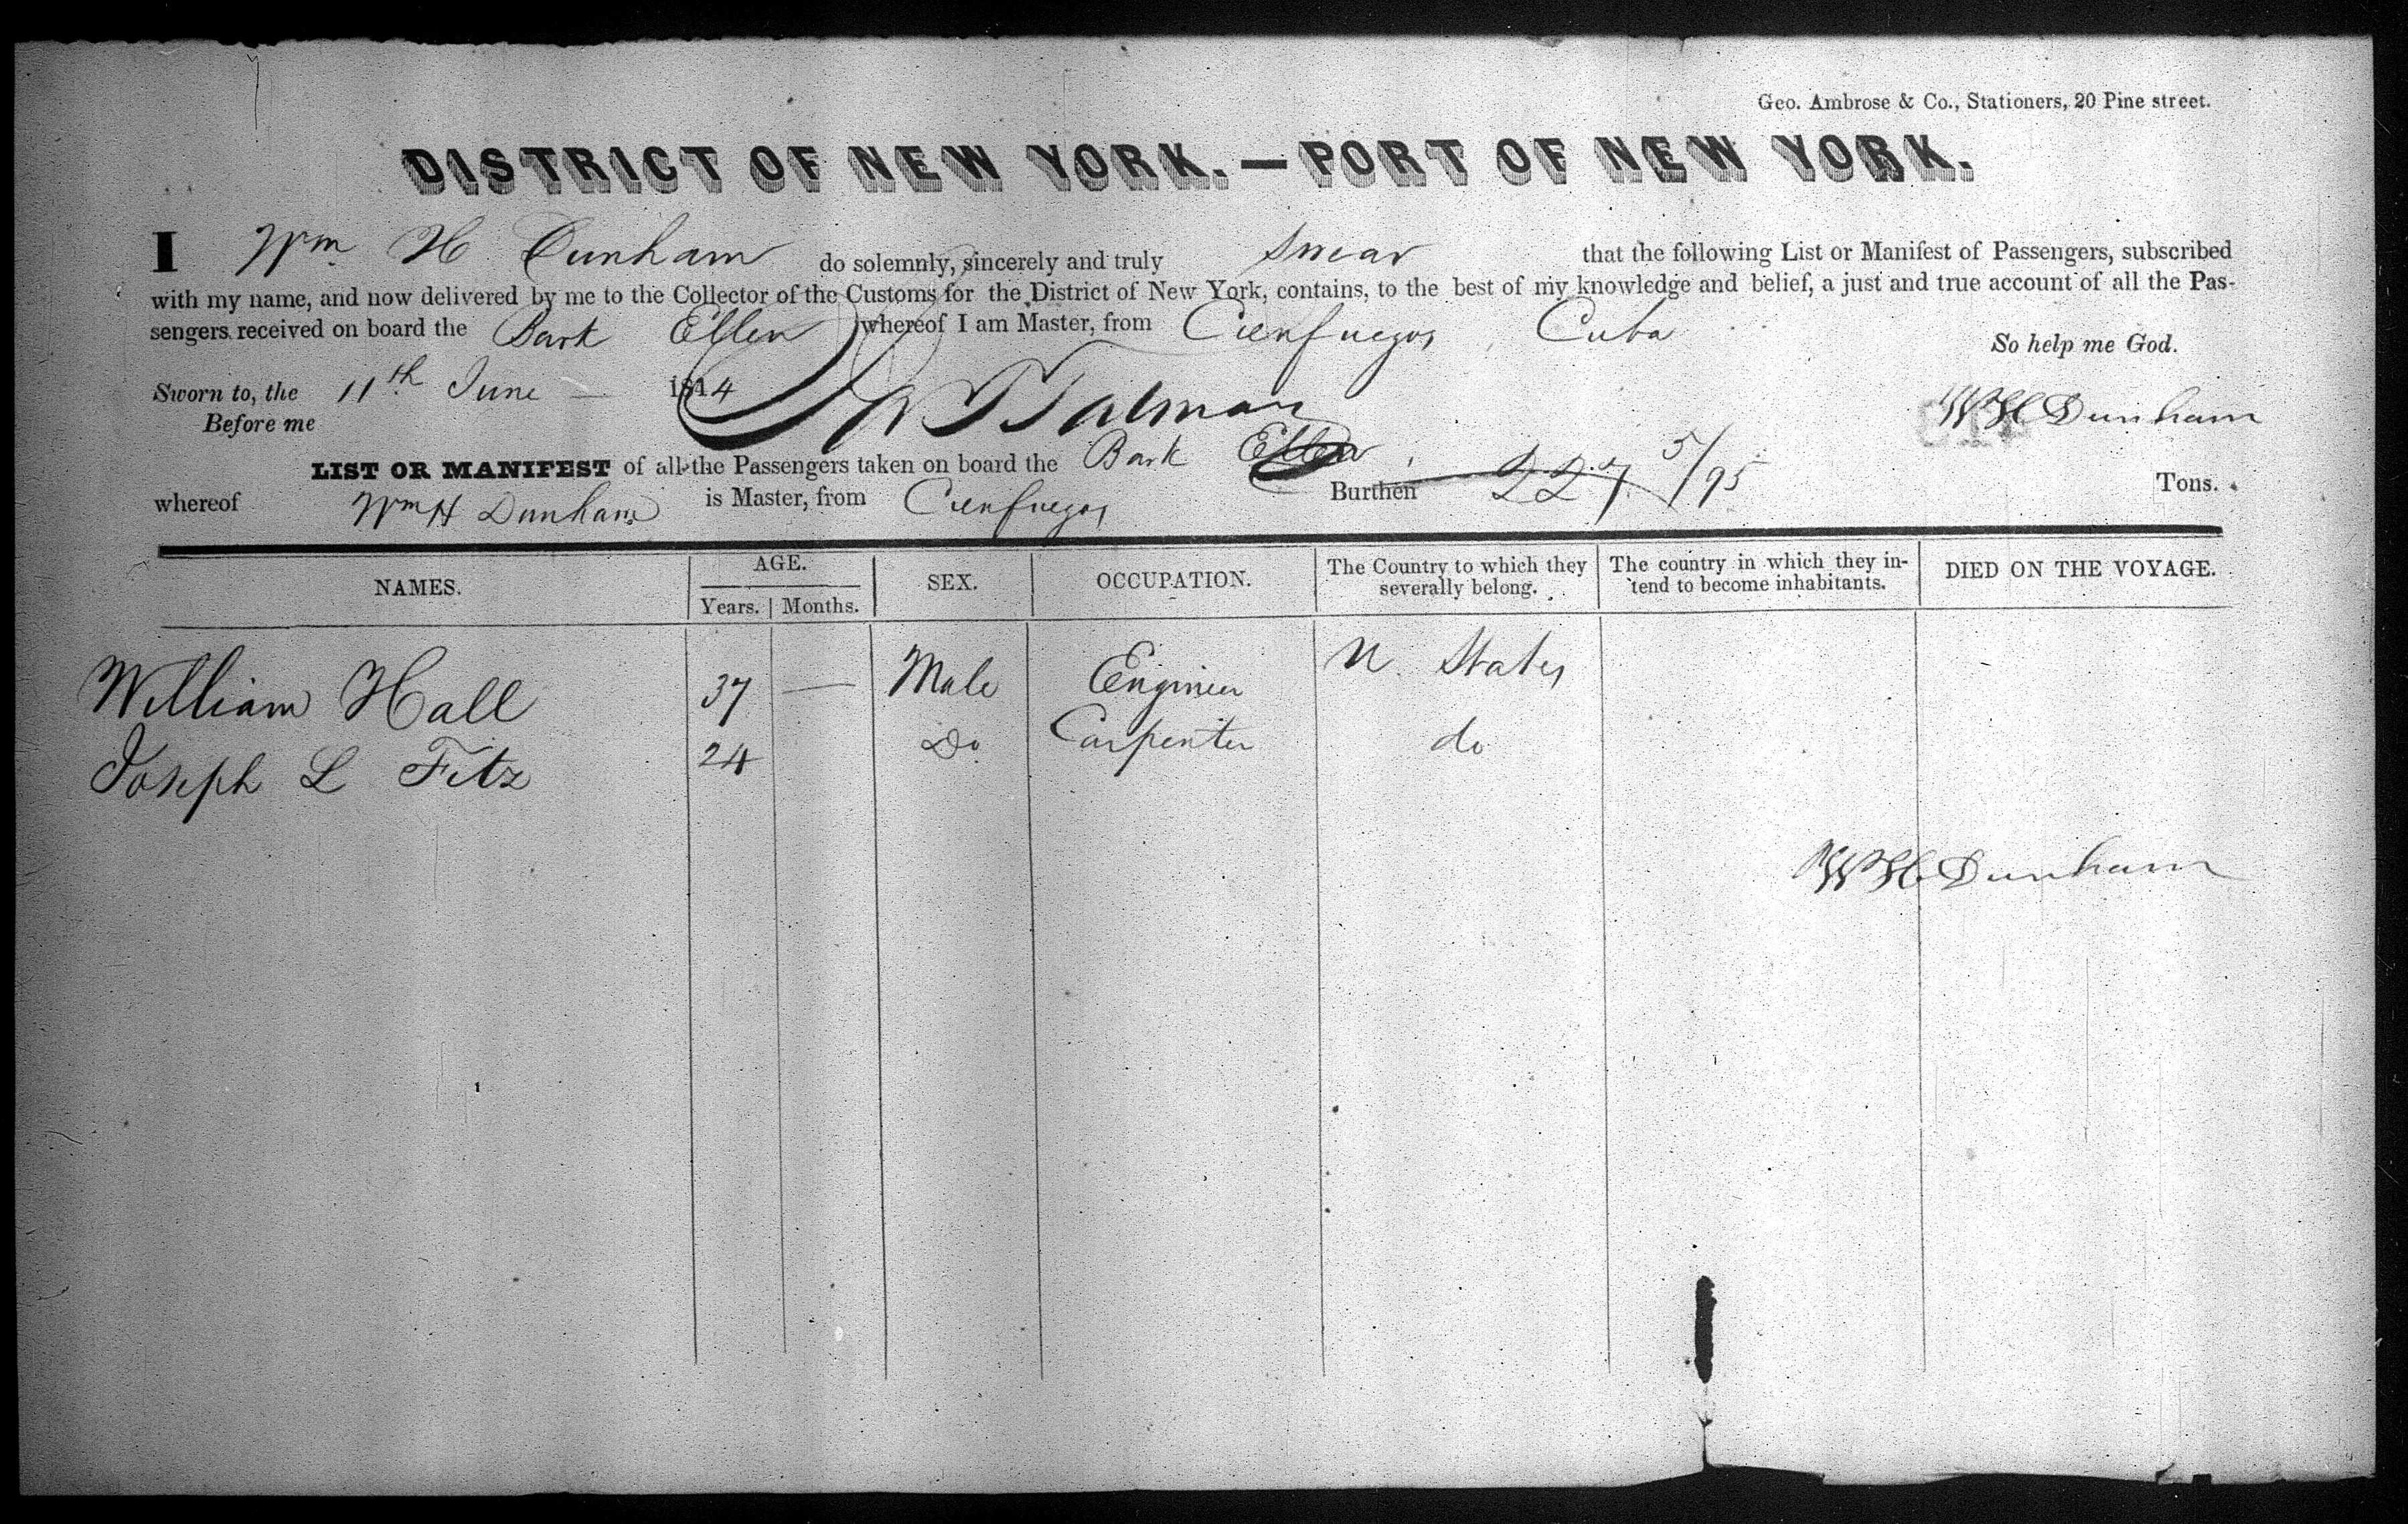 Geo. Ambrose & Co., Stationers, 20 Pine street.
DISTRICT OF NEW YORK.—PORT OF NEW YORK.
I Wm H Dunham do solemnly, sincerely and truly swear that the following List or Manifest of Passengers, subscribed
with my name, and now delivered by me to the Collector of the Customs for the District of New York, contains, to the best of my knowledge and belief, a just and true account of all the Pas-
sengers received on board the Bark Ellen whereof I am Master, from Cienfuegos, Cuba
So help me God.
Sworn to, the 11th June 1844
W H Dunham
Before me
LIST OR MANIFEST of all the Passengers taken on board the Bark Ellen
whereof Wm H Dunham is Master, from Cienfuegos Burthen 227 5/95 Tons.
NAMES. AGE. SEX. OCCUPATION. The Country to which they severally belong. The country in which they in-tend to become inhabitants. DIED ON THE VOYAGE.
Years. Months.
William Hall 37 — Male Engineer U States
Joseph L Fitz 24 Do Carpenter do
W H Dunham